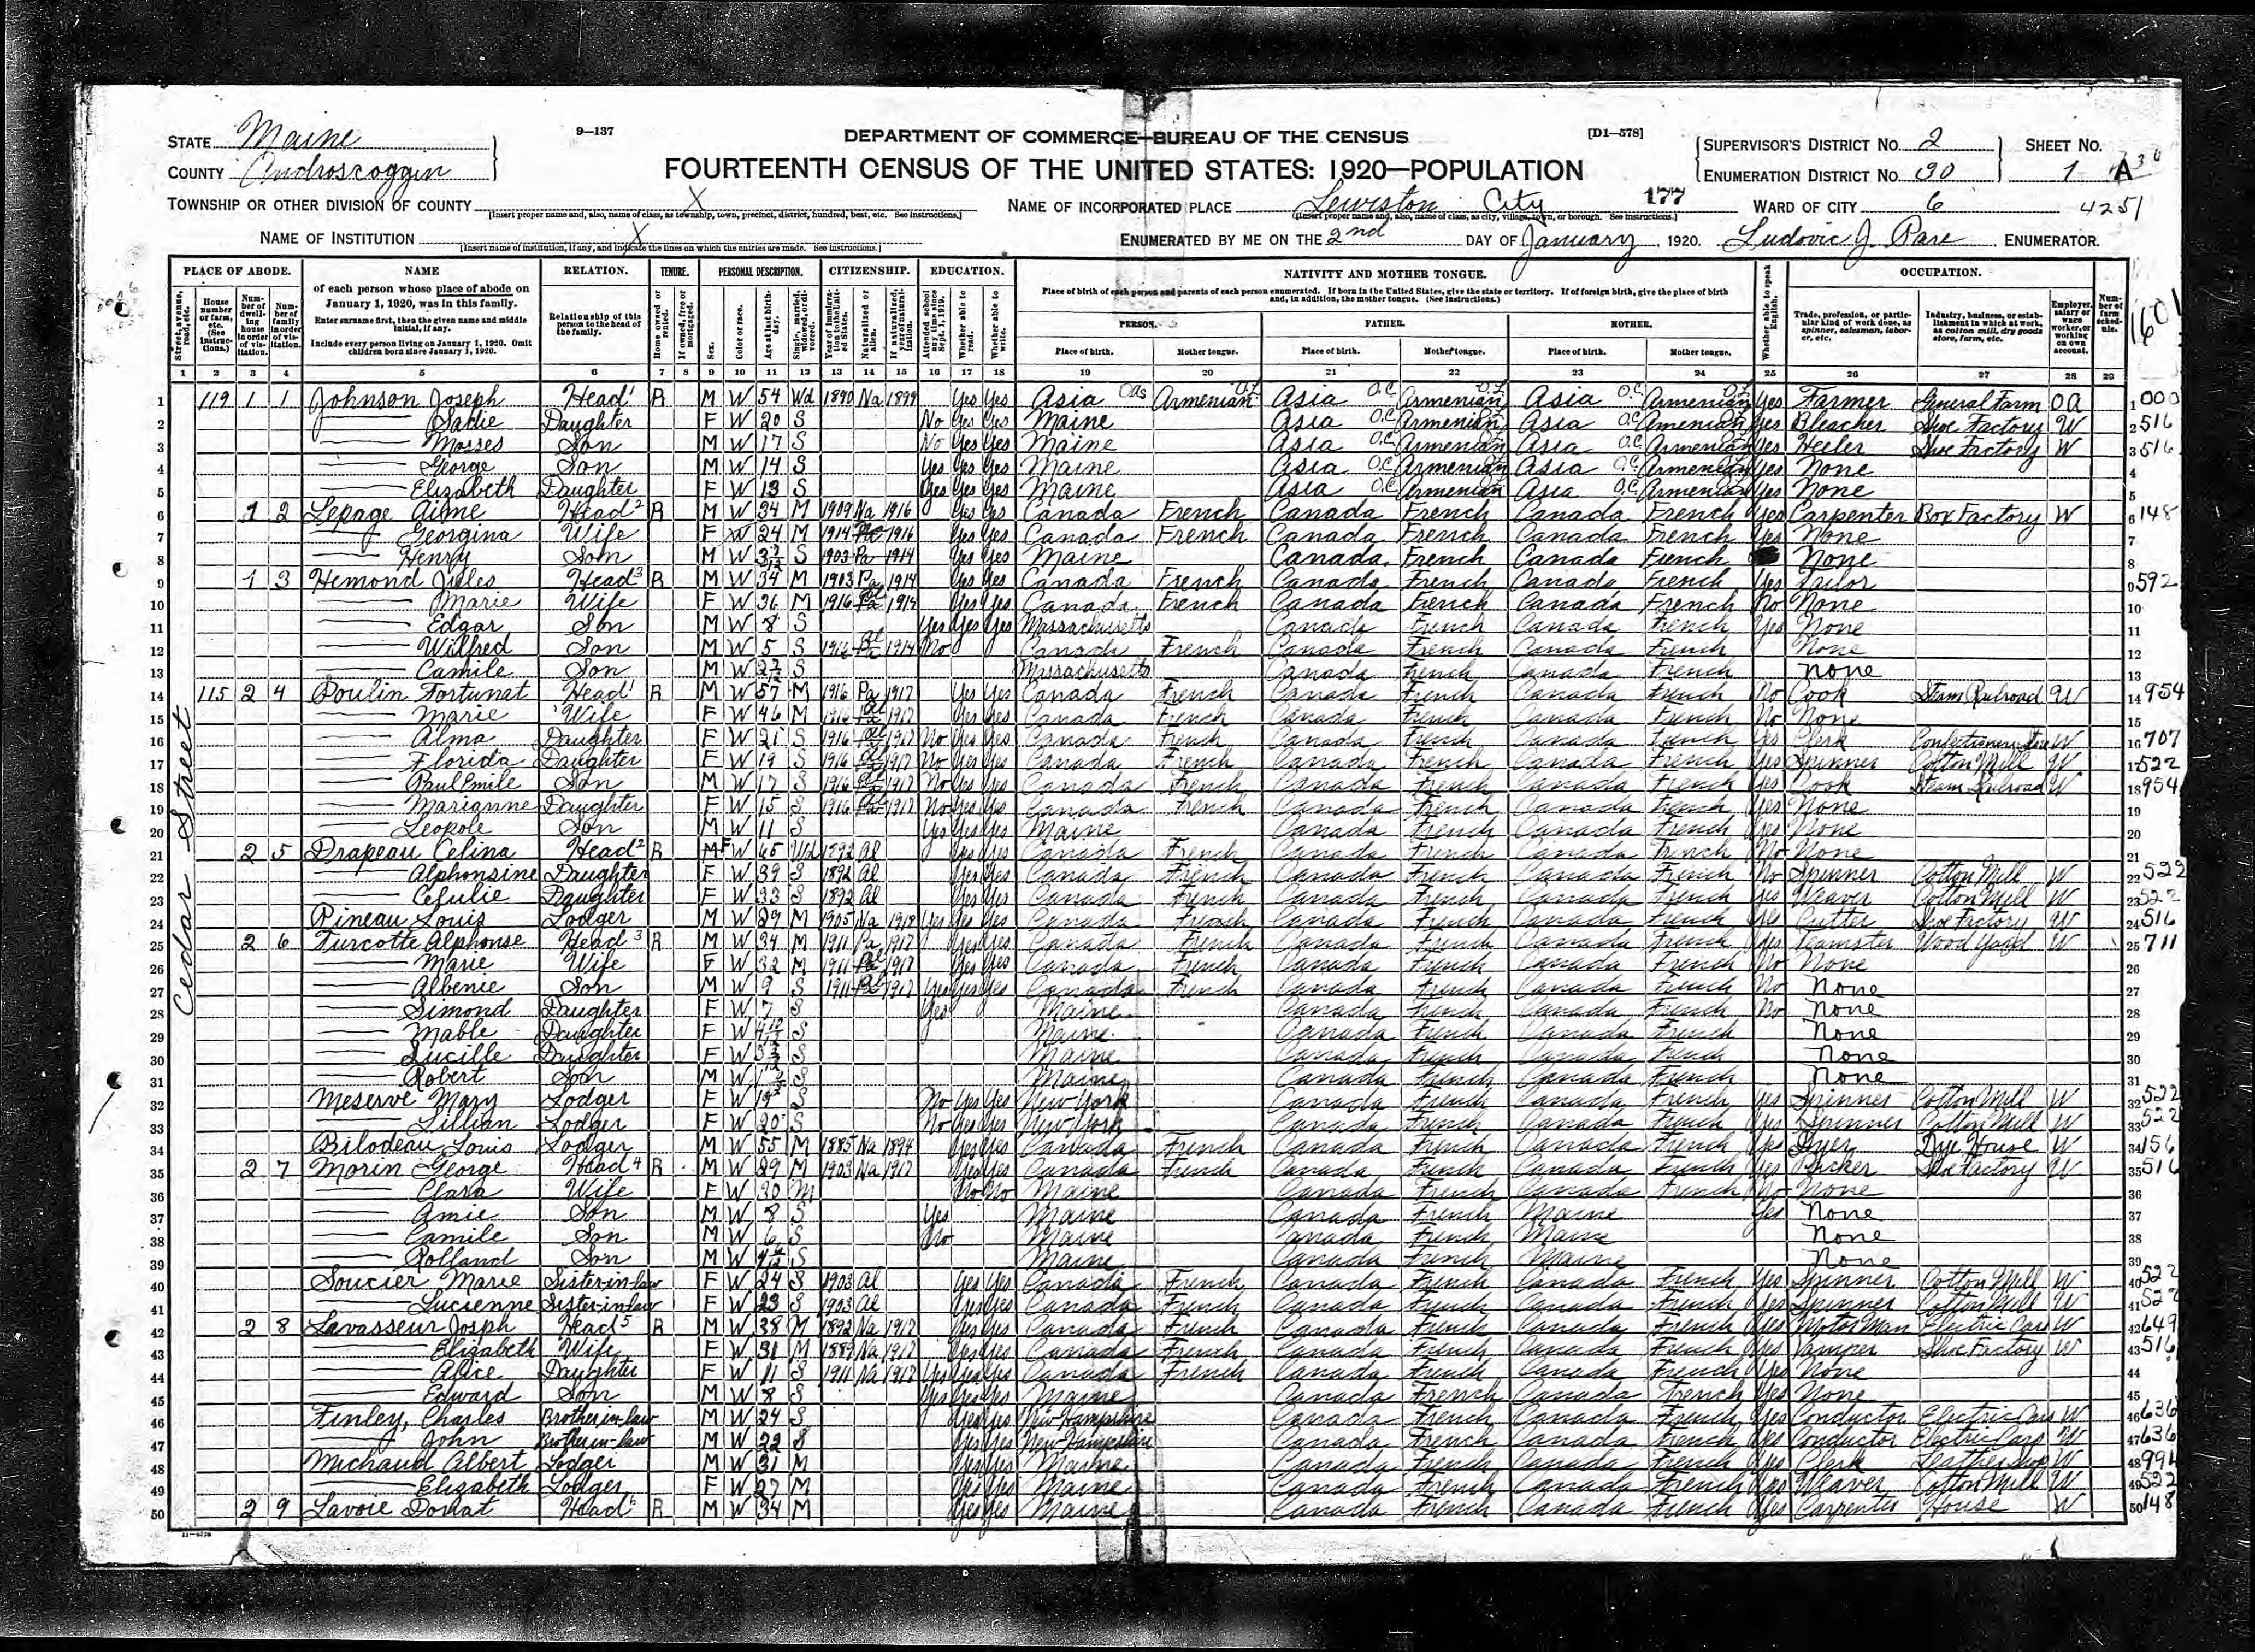 STATE Maine
9–137
DEPARTMENT OF COMMERCE—BUREAU OF THE CENSUS
[D1—578]
COUNTY Androscoggin
FOURTEENTH CENSUS OF THE UNITED STATES: 1920—POPULATION
SUPERVISOR'S DISTRICT No. 2 SHEET No.
ENUMERATION DISTRICT No. 90 1 A
TOWNSHIP OR OTHER DIVISION OF COUNTY X
[Insert proper name and, also, name of class, as township, town, precinct, district, hundred, beat, etc. See instructions.]
NAME OF INCORPORATED PLACE Lewiston City 177
[Insert proper name and, also, name of class, as city, village, town, or borough. See instructions.]
WARD OF CITY 6 4251
NAME OF INSTITUTION X
[Insert name of institution, if any, and indicate the lines on which the entries are made. See instructions.]
ENUMERATED BY ME ON THE 2nd DAY OF January, 1920. Ludovic J. Pare ENUMERATOR.
PLACE OF ABODE. NAME RELATION. TENURE. PERSONAL DESCRIPTION. CITIZENSHIP. EDUCATION. NATIVITY AND MOTHER TONGUE. OCCUPATION.
Cedar Street
1 119 1 1 Johnson Joseph Head R M W 54 Wd 1890 Na 1899 Yes Yes Asia Armenian Asia Armenian Asia Armenian Yes Farmer General Farm OA 000
2 Sadie Daughter F W 20 S No Yes Yes Maine Asia Armenian Asia Armenian Yes Bleacher Shoe Factory W 516
3 Mosses Son M W 17 S No Yes Yes Maine Asia Armenian Asia Armenian Yes Heeler Shoe Factory W 516
4 George Son M W 14 S Yes Yes Yes Maine Asia Armenian Asia Armenian Yes None
5 Elizabeth Daughter F W 13 S Yes Yes Yes Maine Asia Armenian Asia Armenian Yes None
6 1 2 Lepage Aime Head R M W 34 M 1909 Na 1916 Yes Yes Canada French Canada French Canada French Yes Carpenter Box Factory W 148
7 Georgina Wife F W 24 M 1914 1916 Yes Yes Canada French Canada French Canada French Yes None
8 Henry Son M W S 1903 Pa 1914 Yes Yes Maine Canada French Canada French None
9 1 3 Hemond Jules Head R M W 34 M 1903 Pa 1914 Yes Yes Canada French Canada French Canada French Yes Tailor 592
10 Marie Wife F W 36 M 1916 1914 Yes Yes Canada French Canada French Canada French No None
11 Edgar Son M W 8 S Yes Yes Yes Massachusetts Canada French Canada French Yes None
12 Wilfred Son M W 5 S 1916 1914 No Canada French Canada French Canada French None
13 Camile Son M W S Massachusetts Canada French Canada French None
14 115 2 4 Poulin Fortunat Head R M W 57 M 1916 Pa 1917 Yes Yes Canada French Canada French Canada French No Cook Steam Railroad W 954
15 Marie Wife F W 46 M 1916 1917 Yes Yes Canada French Canada French Canada French No None
16 Alma Daughter F W 21 S 1916 1917 No Yes Yes Canada French Canada French Canada French Yes Clerk Confectionery Store W 707
17 Florida Daughter F W 19 S 1916 1917 No Yes Yes Canada French Canada French Canada French Yes Spinner Cotton Mill W 522
18 Paul Emile Son M W 17 S 1916 1917 No Yes Yes Canada French Canada French Canada French Yes Cook Steam Railroad W 954
19 Marianne Daughter F W 15 S 1916 1917 No Yes Yes Canada French Canada French Canada French Yes None
20 Leopole Son M W 11 S Yes Yes Yes Maine Canada French Canada French Yes None
21 2 5 Drapeau Celina Head R F W 65 Wd 1892 Al Yes Yes Canada French Canada French Canada French No None
22 Alphonsine Daughter F W 39 S 1892 Al Yes Yes Canada French Canada French Canada French No Spinner Cotton Mill W 522
23 Daughter F W 33 S 1892 Al Yes Yes Canada French Canada French Canada French Yes Weaver Cotton Mill W 522
24 Pineau Louis Lodger M W 29 M 1905 Na 1918 Yes Yes Yes Canada French Canada French Canada French Yes Cutter Shoe Factory W 516
25 2 6 Turcotte Alphonse Head R M W 34 M 1911 Pa 1917 Yes Yes Canada French Canada French Canada French Yes Teamster Wood Yard W 711
26 Marie Wife F W 32 M 1911 1917 Yes Yes Canada French Canada French Canada French No None
27 Albenie Son M W 9 S 1911 1917 Yes Yes Yes Canada French Canada French Canada French No None
28 Simond Daughter F W 7 S Yes Maine Canada French Canada French No None
29 Mable Daughter F W S Maine Canada French Canada French None
30 Lucille Daughter F W S Maine Canada French Canada French None
31 Robert Son M W S Maine Canada French Canada French None
32 Meserve Mary Lodger F W 19 S No Yes Yes New York Canada French Canada French Yes Spinner Cotton Mill W 522
33 Lillian Lodger F W 20 S No Yes Yes New York Canada French Canada French Yes Spinner Cotton Mill W 522
34 Bilodeau Louis Lodger M W 55 M 1885 Na 1894 Yes Yes Canada French Canada French Canada French Yes Dyer Dye House W 156
35 2 7 Morin George Head R M W 29 M 1903 Na 1917 Yes Yes Canada French Canada French Canada French Yes Packer Shoe Factory W 516
36 Clara Wife F W 30 M No No Maine Canada French Canada French No None
37 Amie Son M W 8 S Yes Maine Canada French Maine Yes None
38 Camile Son M W 6 S No Maine Canada French Maine None
39 Rolland Son M W S Maine Canada French Maine None
40 Soucier Marie Sister-in-law F W 24 S 1903 Al Yes Yes Canada French Canada French Canada French Yes Spinner Cotton Mill W 522
41 Lucienne Sister-in-law F W 23 S 1903 Al Yes Yes Canada French Canada French Canada French Yes Spinner Cotton Mill W 522
42 2 8 Lavasseur Josph Head R M W 38 M 1892 Na 1917 Yes Yes Canada French Canada French Canada French Yes Motor Man Electric Cars W 649
43 Elizabeth Wife F W 31 M 1889 Na 1917 Yes Yes Canada French Canada French Canada French Yes Vamper Shoe Factory W 516
44 Alice Daughter F W 11 S 1911 Na 1917 Yes Yes Yes Canada French Canada French Canada French Yes None
45 Edward Son M W 8 S Yes Yes Yes Maine Canada French Canada French Yes None
46 Finley, Charles Brother-in-law M W 24 S Yes Yes New Hampshire Canada French Canada French Yes Conductor Electric Cars W 636
47 John Brother-in-law M W 22 S Yes Yes New Hampshire Canada French Canada French Yes Conductor Electric Cars W 636
48 Michaud Albert Lodger M W 31 M Yes Yes Maine Canada French Canada French Yes Clerk Leather Shop W
49 Elizabeth Lodger F W 27 M Yes Yes Maine Canada French Canada French Yes Weaver Cotton Mill W 522
50 2 9 Lavoie Donat Head R M W 34 M Yes Yes Maine Canada French Canada French Yes Carpenter House W 148